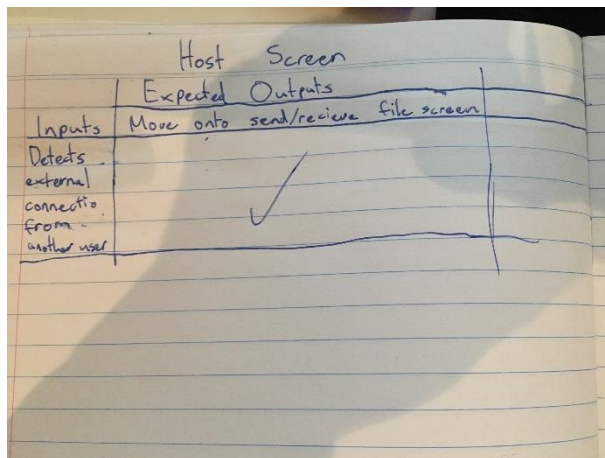 Host Screen
Expected Outputs
Inputs Move onto send/recieve file screen
Detects
external
connectio
from
another user